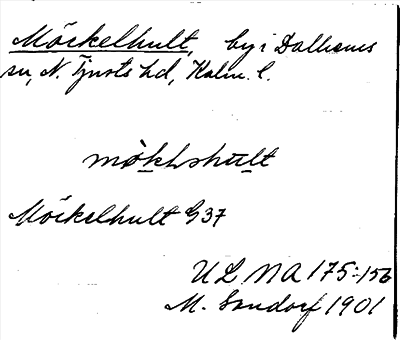 Möckelhult, by i Dalhems
sn, N. Tjusts hd, Kalm. l.
Möckelhult G37
ULMA 175:156
M. Sondorf 1901